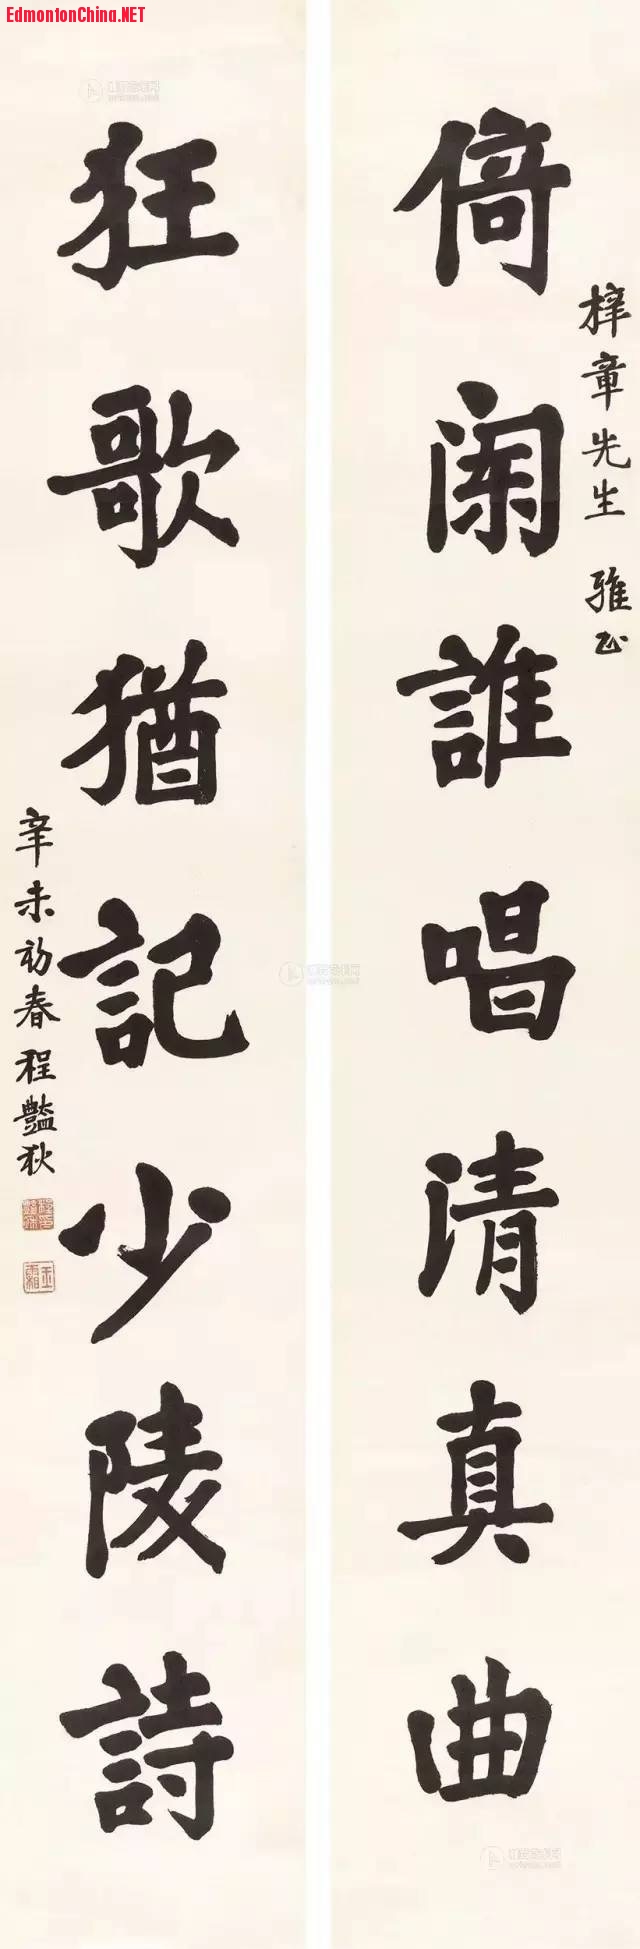 EdmontonChina.NET
倚闌誰唱清真曲
梓章先生 雅正
狂歌猶記少陵詩
辛未初春程豔秋